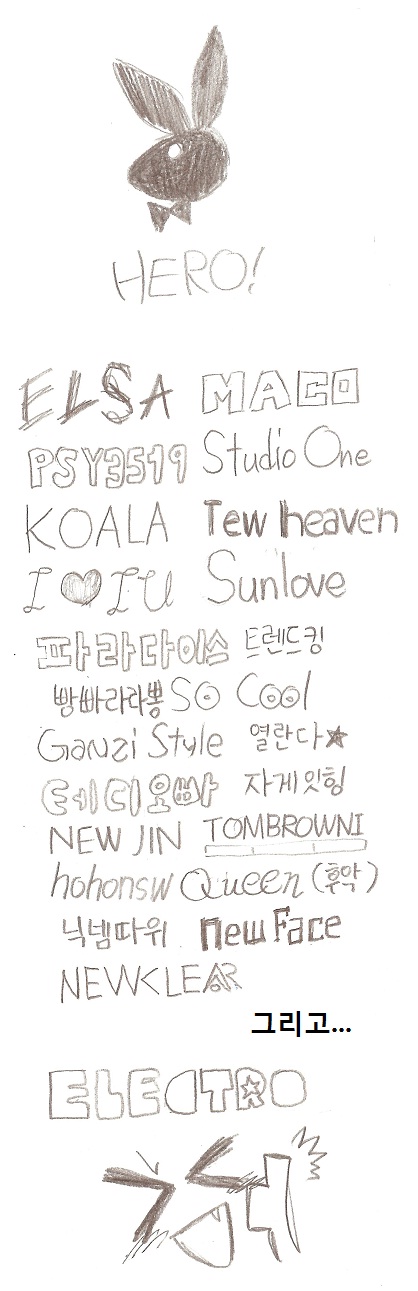 HERO!
ELSA MACO
PSY3519 Studio One
KOALA Tew heaven
I ♥ IU Sunlove
파라다이스 트렌드킹
빵빠라라뽕 SO Cool
Ganzi Style 열란다★
테디오빠 자게잇힝
NEW JIN TOMBROWNI
hohonsw Queen (후악)
닉넴따위 new Face
NEWCLEAR
그리고...
ELECTRO